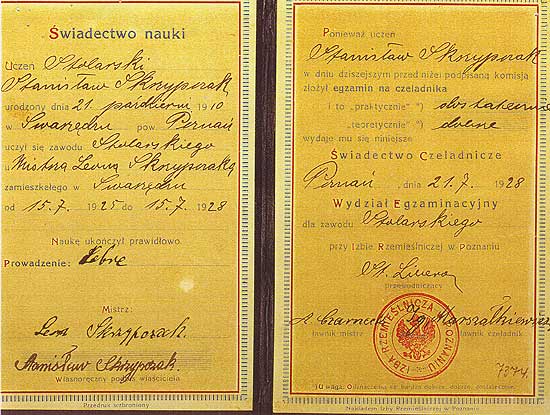 Świadectwo nauki
Uczeń Stolarski
Stanisław Skrzypczak
urodzony dnia 21 październ 1910
w Swarzędzu pow. Poznań
uczył się zawodu Stolarskiego
u Mistrza Leona Skrzypczaka
zamieszkałego w Swarzędzu
od 15.7. 1925 do 15.7. 1928
Naukę ukończył prawidłowo.
Prowadzenie: dobre
Mistrz:
Leon Skrzypczak.
Stanisław Skrzypczak.
Własnoręczny podpis właściciela
Przedruk wzbroniony
Ponieważ uczeń
Stanisław Skrzypczak
w dniu dzisiejszym przed niżej podpisaną komisją
złożył egzamin na czeladnika
i to „praktycznie" *) dostatecznie
„teoretycznie" *) dobrze
wydaje mu się niniejsze
Świadectwo Czeladnicze
Poznań, dnia 21.7. 1928
Wydział Egzaminacyjny
dla zawodu Stolarskiego
przy Izbie Rzemieślniczej w Poznaniu
St.
przewodniczący
Czarnecki Marszałkiewicz
ławnik mistrz ławnik czeladnik
IZBA RZEMIEŚLNICZA W POZNANIU
7374.
*) Uwaga: Odznaczenia na bardzo dobrze, dobrze, dostatecznie.
Nakładem Izby Rzemieślniczej w Poznaniu